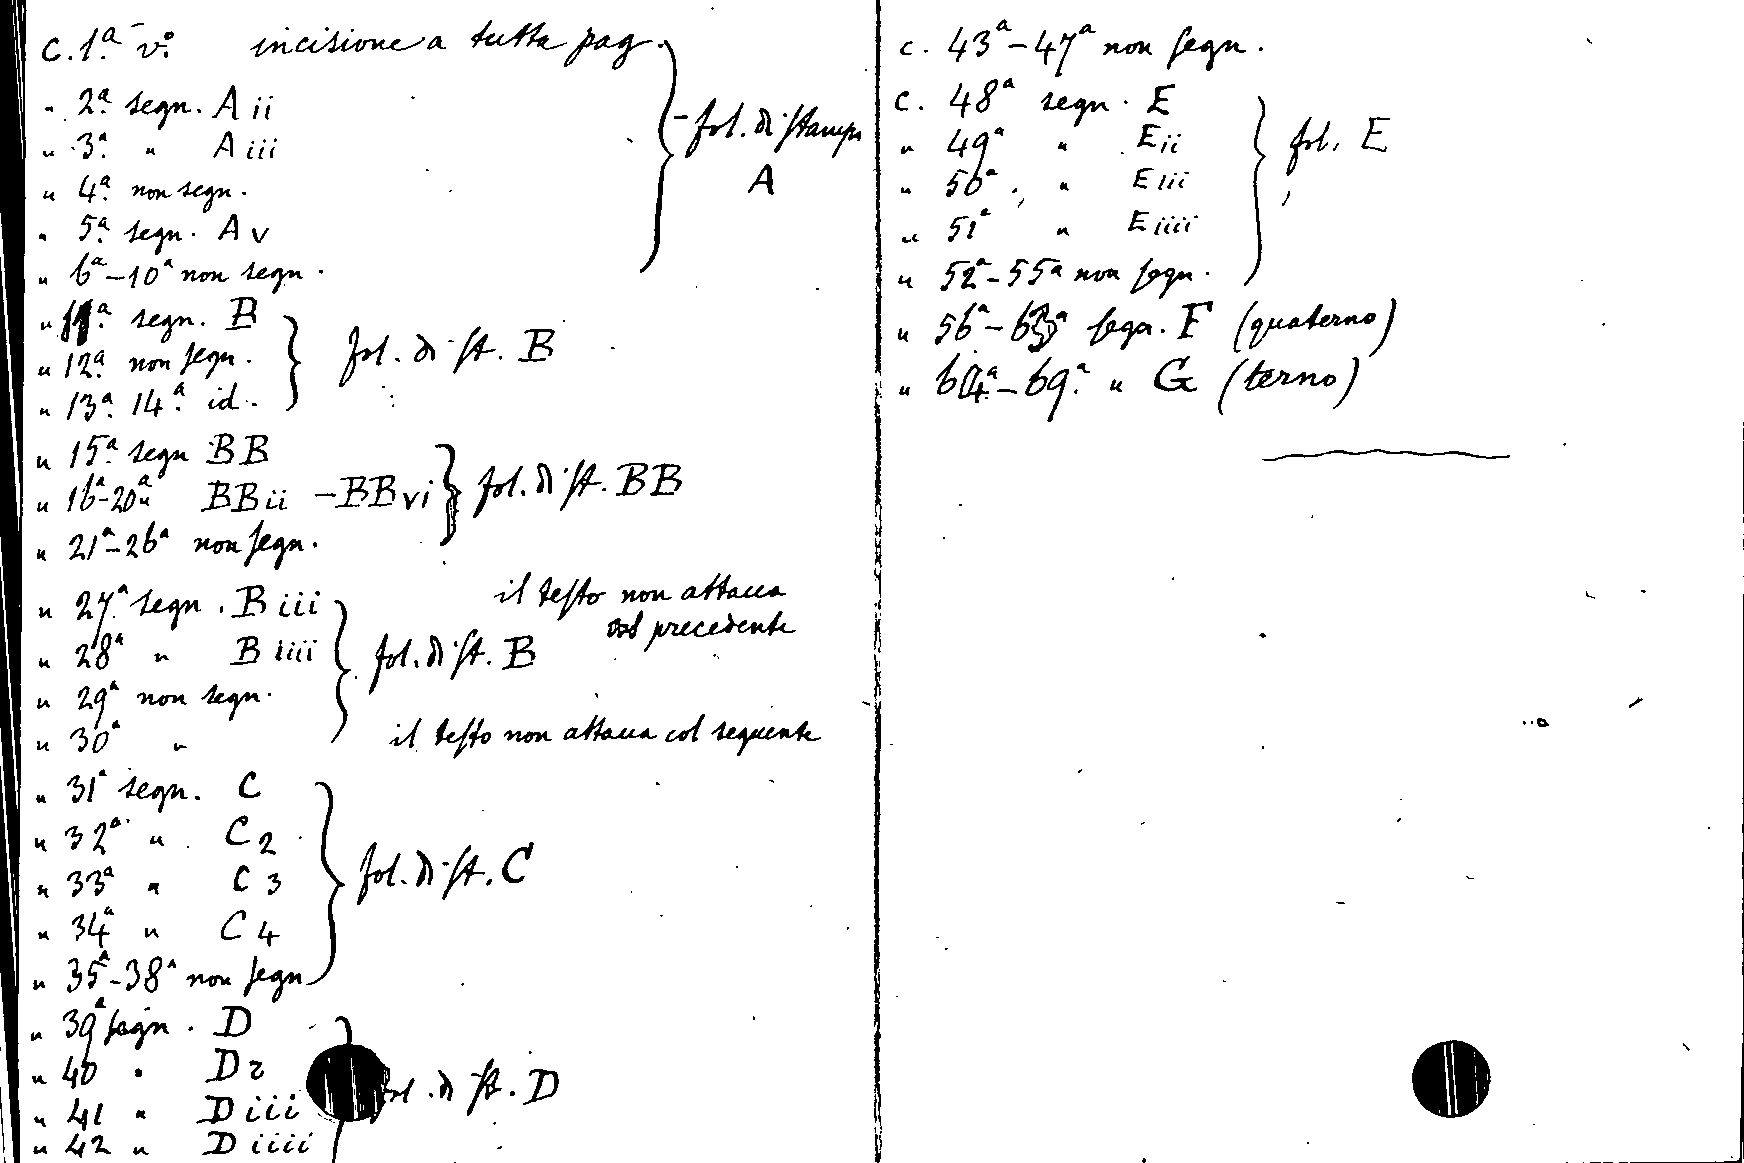 C. 1ª vº. incisione a tutta pag.
" 2ª segn. A ii
" 3ª " A iii
- fol. di stampa
A
" 4ª non segn.
" 5ª segn. A v
" 6ª-10ª non segn.
" 11ª segn. B
" 12ª non segn.
fol. di st. B
" 13ª. 14ª. id.
" 15ª segn BB
" 16ª-20ª " BB ii - BB vi
fol. di st. BB
" 21ª-26ª non segn.
" 27ª segn. B iii
il testo non attacca
col precedente
" 28ª " B iiii
fol. di st. B
" 29ª non segn.
" 30ª "
il testo non attacca col seguente
" 31ª segn. C
" 32ª " C 2
" 33ª " C 3
fol. di st. C
" 34ª " C 4
" 35ª-38ª non segn
" 39ª segn. D
" 40 " D 2
fol. di st. D
" 41 " D iii
" 42 " D iiii
c. 43ª-47ª non segn.
C. 48ª segn. E
" 49ª " E ii
fol. E
" 50ª. " E iii
" 51ª " E iiii
" 52ª-55ª non segn.
" 56ª-63ª segn. F (quaterno)
" 64ª-69ª. " G (terno)